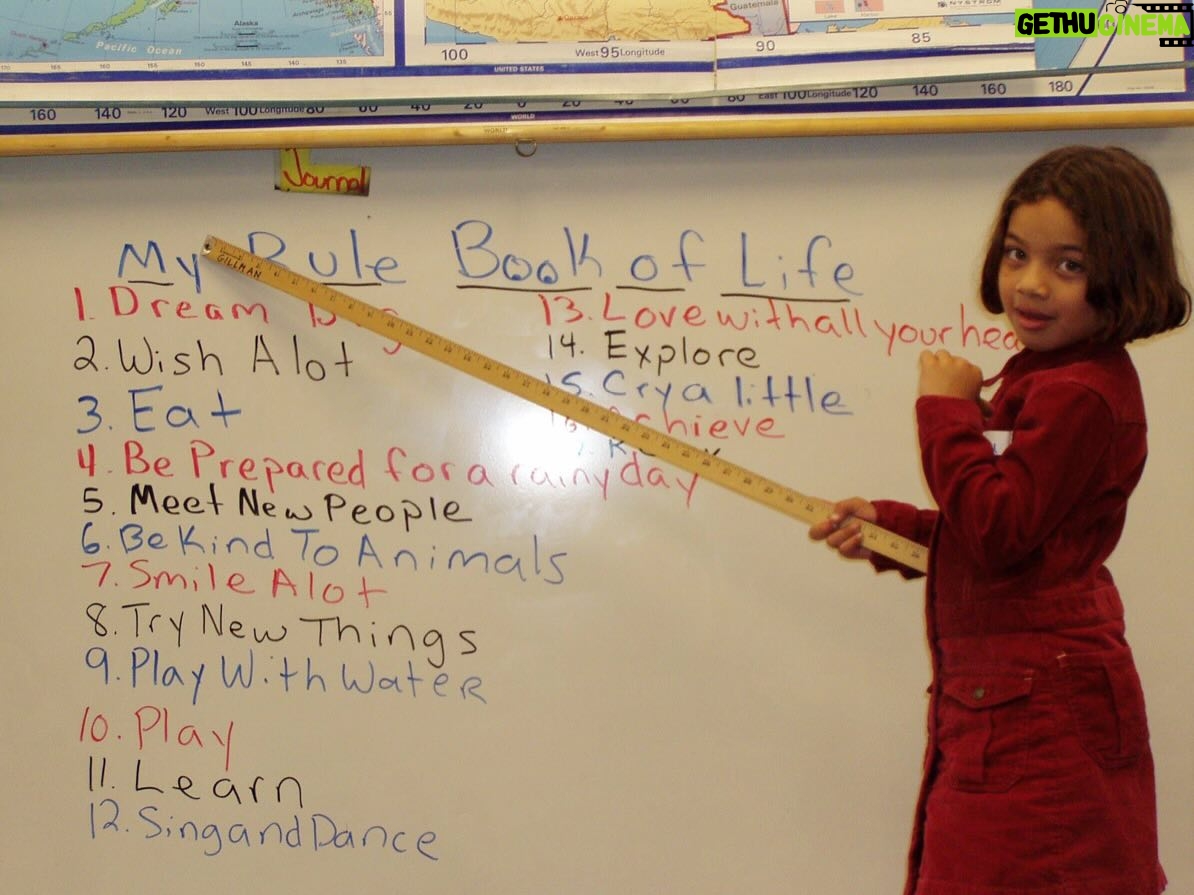 GETHUCINEMA
Alaska
Pacific Ocean
Guatemala
NYSTROM
100 West 95 Longitude 90 85
UNITED STATES
160 140 120 West 100 Longitude 80 60 40 20 0 20 40 60 80 East 100 Longitude 120 140 160 180
WORLD
WORLD
Journal
My Rule Book of Life
GILLMAN
1. Dream
2. Wish Alot
3. Eat
4. Be Prepared for a rainy day
5. Meet New People
6. Be Kind To Animals
7. Smile Alot
8. Try New Things
9. Play With Water
10. Play
11. Learn
12. Sing and Dance
13. Love with all your hea
14. Explore
15. Cry a little
16. Achieve